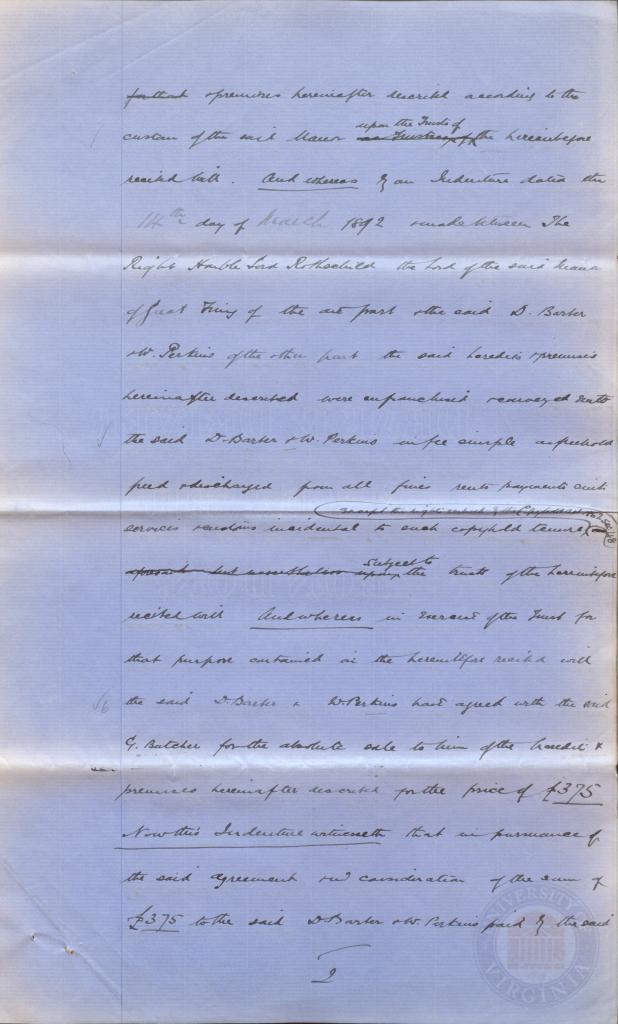 & premises hereinafter described according to the
custom of the said Manor upon the Trusts of the hereinbefore
recited Will. And whereas by an Indenture dated the
14th day of March 1892 & made between The
Right Honble Lord Rothschild the Lord of the said Manor
of Great Tring of the one part & the said D. Barber
& W. Perkins of the other part the said heredits & premises
hereinafter described were enfranchised & conveyed unto
the said D. Barber & W. Perkins in fee simple as freehold
freed & discharged from all fines rents payments suits
except the rights mentd. in the Copyhold Act
services & customs incidental to such copyhold tenure
subject to the trusts of the hereinbefore
recited will And whereas in exercise of the Trust for
that purpose contained in the hereinbefore recited will
the said D. Barber & W. Perkins have agreed with the said
G. Butcher for the absolute sale to him of the heredits &
premises hereinafter described for the price of £375
Now this Indenture witnesseth that in pursuance of
the said agreement and consideration of the sum of
£375 to the said D. Barber & W. Perkins paid by the said
2
UNIVERSITY of VIRGINIA